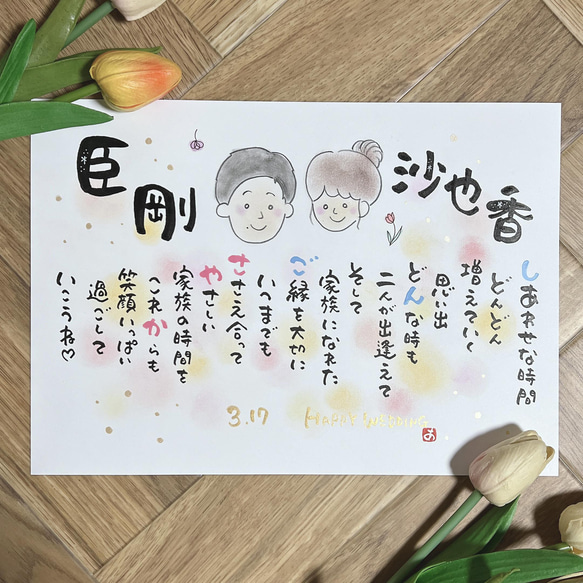 臣剛
沙也香
しあわせな時間
どんどん
増えていく
思い出
どんな時も
二人が出逢えて
そして
家族になれた
ご縁を大切に
いつまでも
ささえ合って
やさしい
家族の時間を
これからも
笑顔いっぱい
過ごして
いこうね♡
3.17
HAPPY WEDDING
お